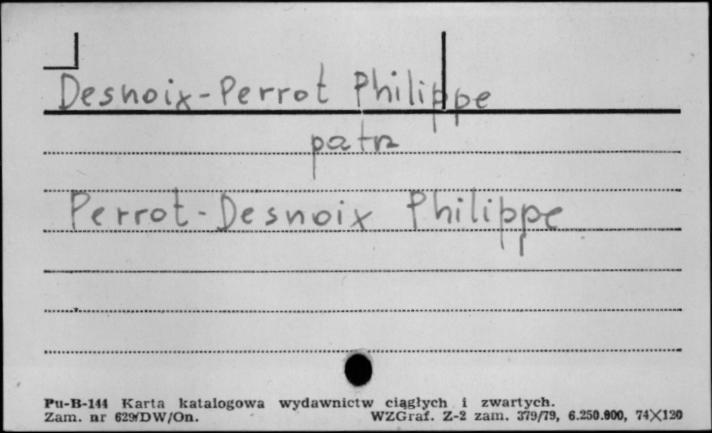 Desnoix-Perrot Philippe
patrz
Perrot-Desnoix Philippe
Pu-B-144 Karta katalogowa wydawnictw ciągłych i zwartych.
Zam. nr 629/DW/On. WZGraf. Z-2 zam. 379/79, 6.250.000, 74×120